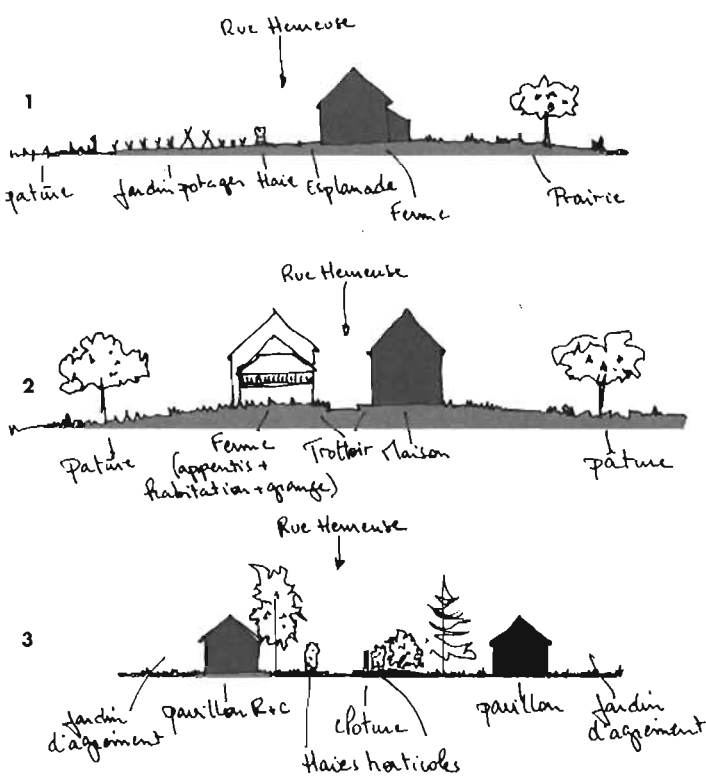 Rue Hemeuse
1
pature
Jardin potager
Haie
Esplanade
Ferme
Prairie
Rue Hemeuse
2
Pature
Ferme
(appentis +
habitation + grange)
Trottoir
Maison
pâture
Rue Hemeuse
3
Jardin
d'agrément
pavillon R+C
clôture
Haies horticoles
pavillon
Jardin
d'agrément